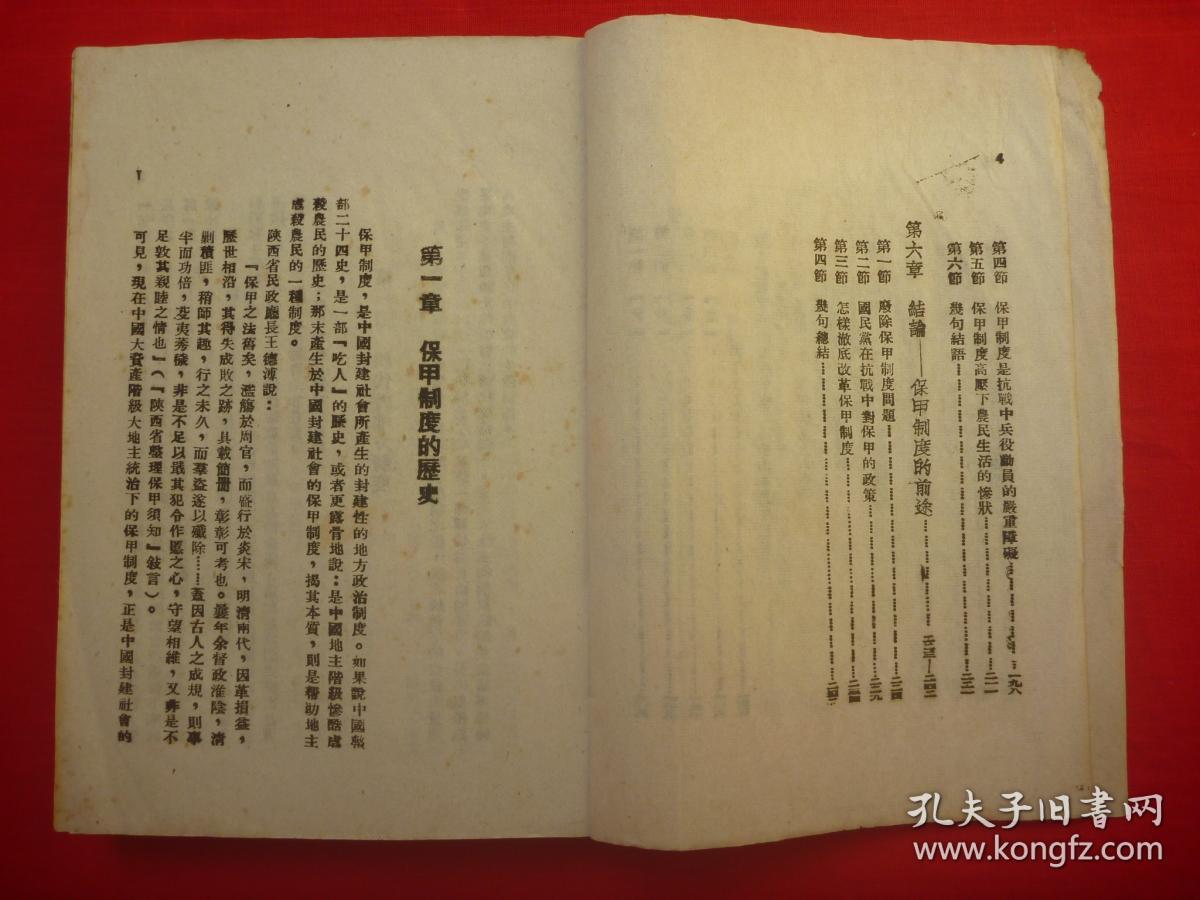 4
第四節　保甲制度是抗戰中兵役動員的嚴重障礙……一九八
第五節　保甲制度高壓下農民生活的慘狀……二一一
第六節　幾句結語……
第六章　結論——保甲制度的前途……
第一節　廢除保甲制度問題……
第二節　國民黨在抗戰中對保甲的政策……
第三節　怎樣澈底改革保甲制度……
第四節　幾句總結……
1
第一章　保甲制度的歷史
保甲制度，是中國封建社會所產生的封建性的地方政治制度。如果說中國整
部二十四史，是一部『吃人』的歷史，或者更露骨地說：是中國地主階級慘酷虐
殺農民的歷史；那末產生於中國封建社會的保甲制度，揭其本質，則是幫助地主
虐殺農民的一種制度。
陝西省民政廳長王德溥說：
『保甲之法舊矣，濫觴於周官，而盛行於炎宋，明清兩代，因革損益，
歷世相沿，其得失成敗之跡，具載簡冊，彰彰可考也。曩年余督政淮陰，清
剿積匪，稍師其趣，行之未久，而羣盜遂以殲除……蓋因古人之成規，則事
半而功倍，芟夷莠穢，非是不足以戢其犯令作慝之心，守望相維，又非是不
足敦其親睦之情也』（『陝西省整理保甲須知』敍言）。
可見，現在中國大資產階級大地主統治下的保甲制度，正是中國封建社會的
孔夫子旧书网
www.kongfz.com